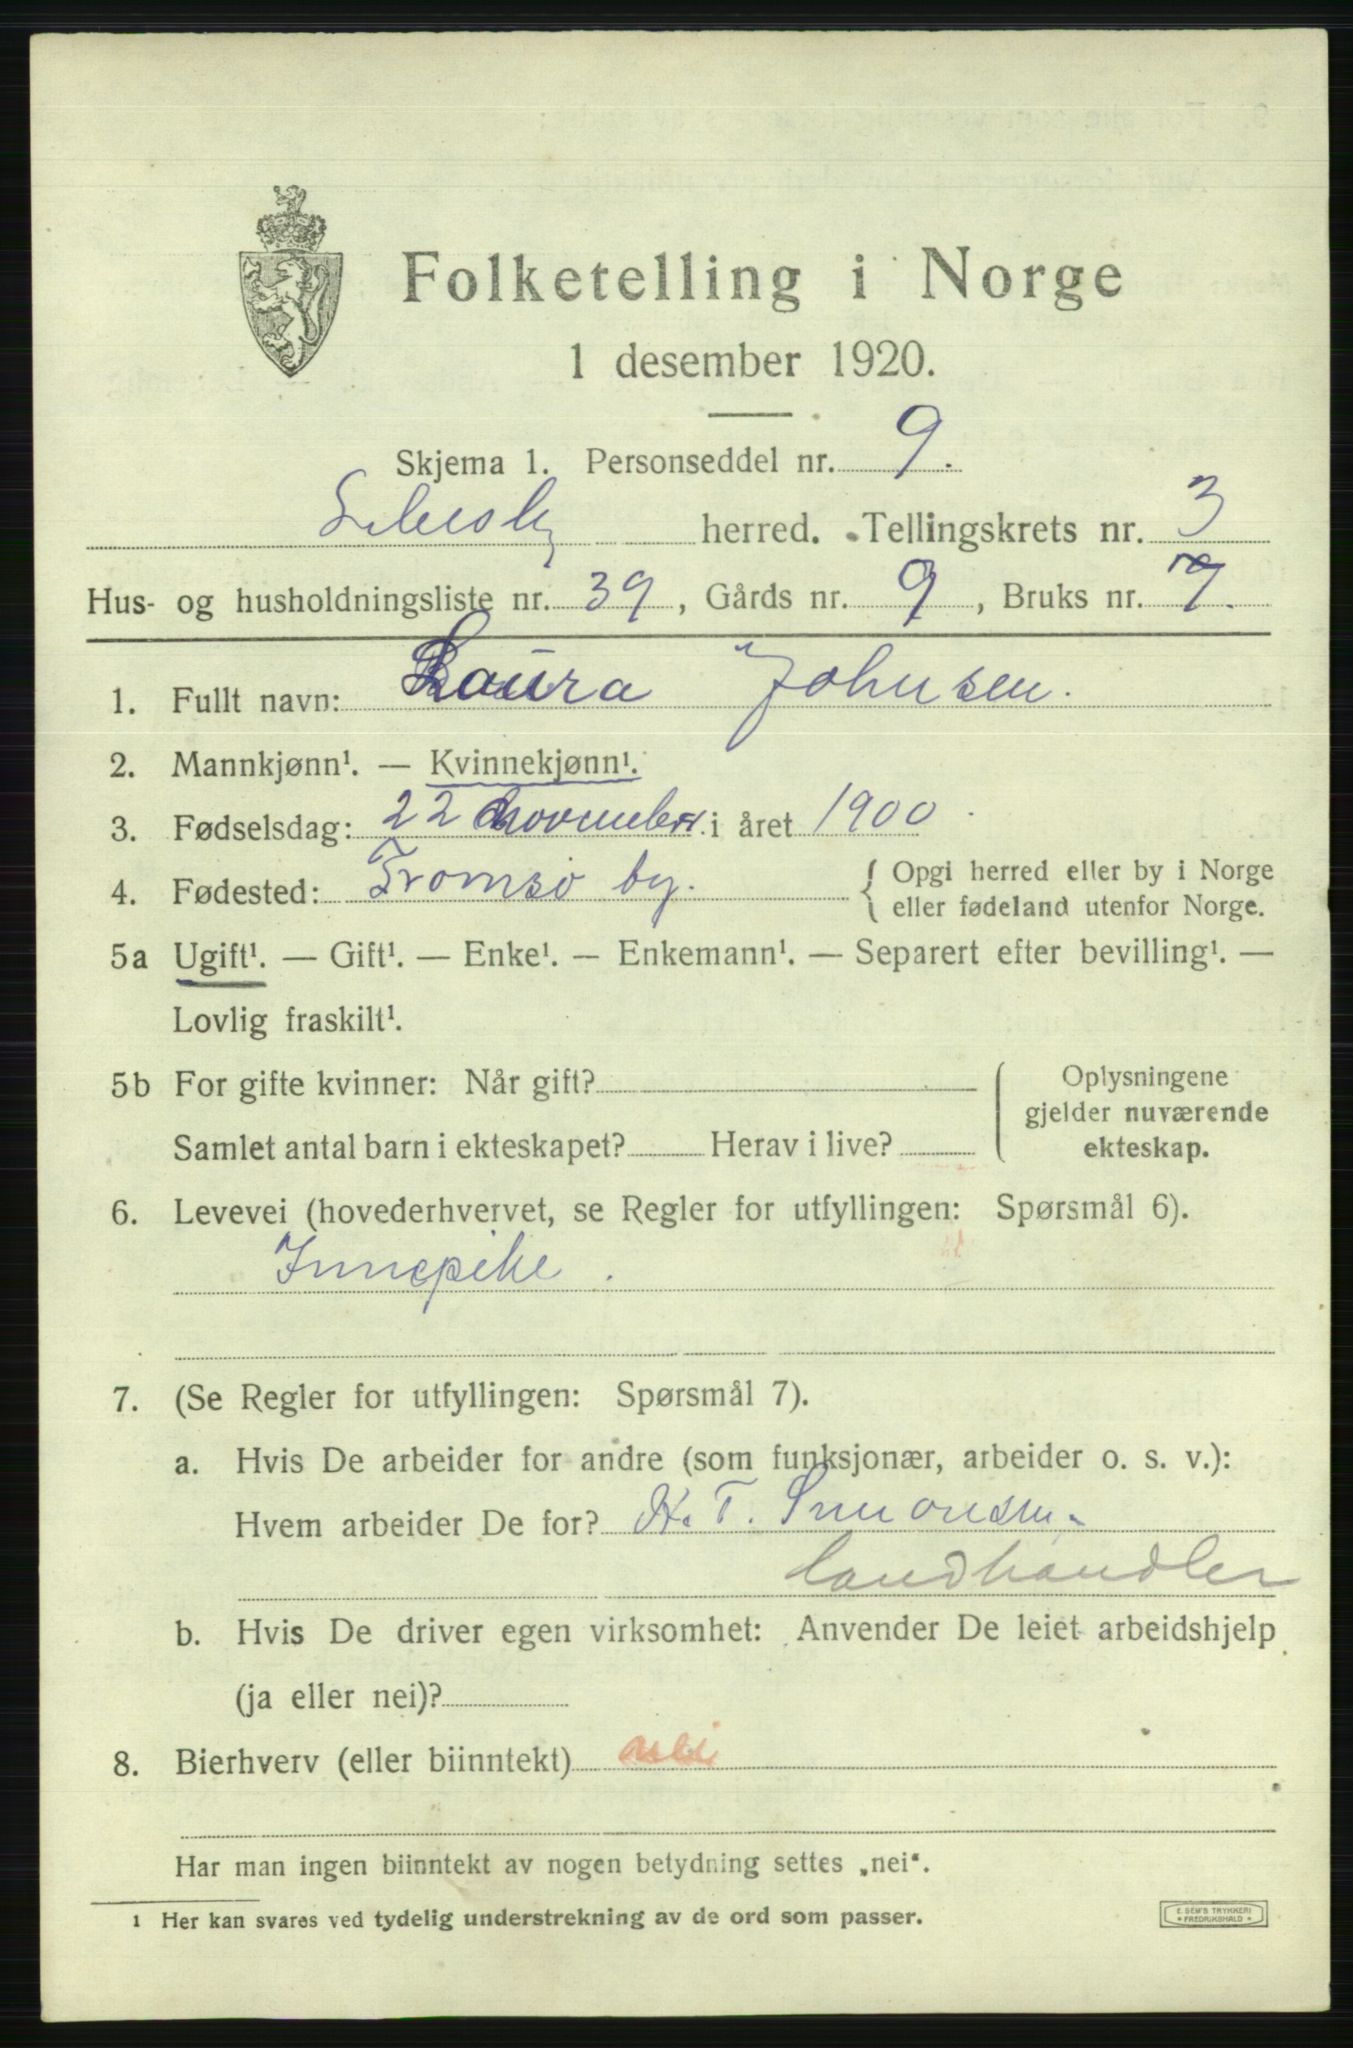 Folketelling i Norge
1 desember 1920.
Skjema 1. Personseddel nr. 9.
Lebesby herred. Tellingskrets nr. 3
Hus- og husholdningsliste nr. 39, Gårds nr. 9, Bruks nr. 7.
1. Fullt navn: Laura Johnsen.
2. Mannkjønn¹. — Kvinnekjønn¹.
3. Fødselsdag: 22 november i året 1900.
4. Fødested: Tromsø by. { Opgi herred eller by i Norge
eller fødeland utenfor Norge.
5a Ugift¹. — Gift¹. — Enke¹. — Enkemann¹. — Separert efter bevilling¹. —
Lovlig fraskilt¹.
5b For gifte kvinner: Når gift?
Samlet antal barn i ekteskapet? Herav i live?
Oplysningene
gjelder nuværende
ekteskap.
6. Levevei (hovederhvervet, se Regler for utfyllingen: Spørsmål 6).
Innepike.
7. (Se Regler for utfyllingen: Spørsmål 7).
a. Hvis De arbeider for andre (som funksjonær, arbeider o. s. v.):
Hvem arbeider De for? H. T. Simonsen.
landhandler
b. Hvis De driver egen virksomhet: Anvender De leiet arbeidshjelp
(ja eller nei)?
8. Bierhverv (eller biinntekt) nei
Har man ingen biinntekt av nogen betydning settes „nei“.
1 Her kan svares ved tydelig understrekning av de ord som passer.
E. SEM'S TRYKKERI
* FREDRIKSHALD *